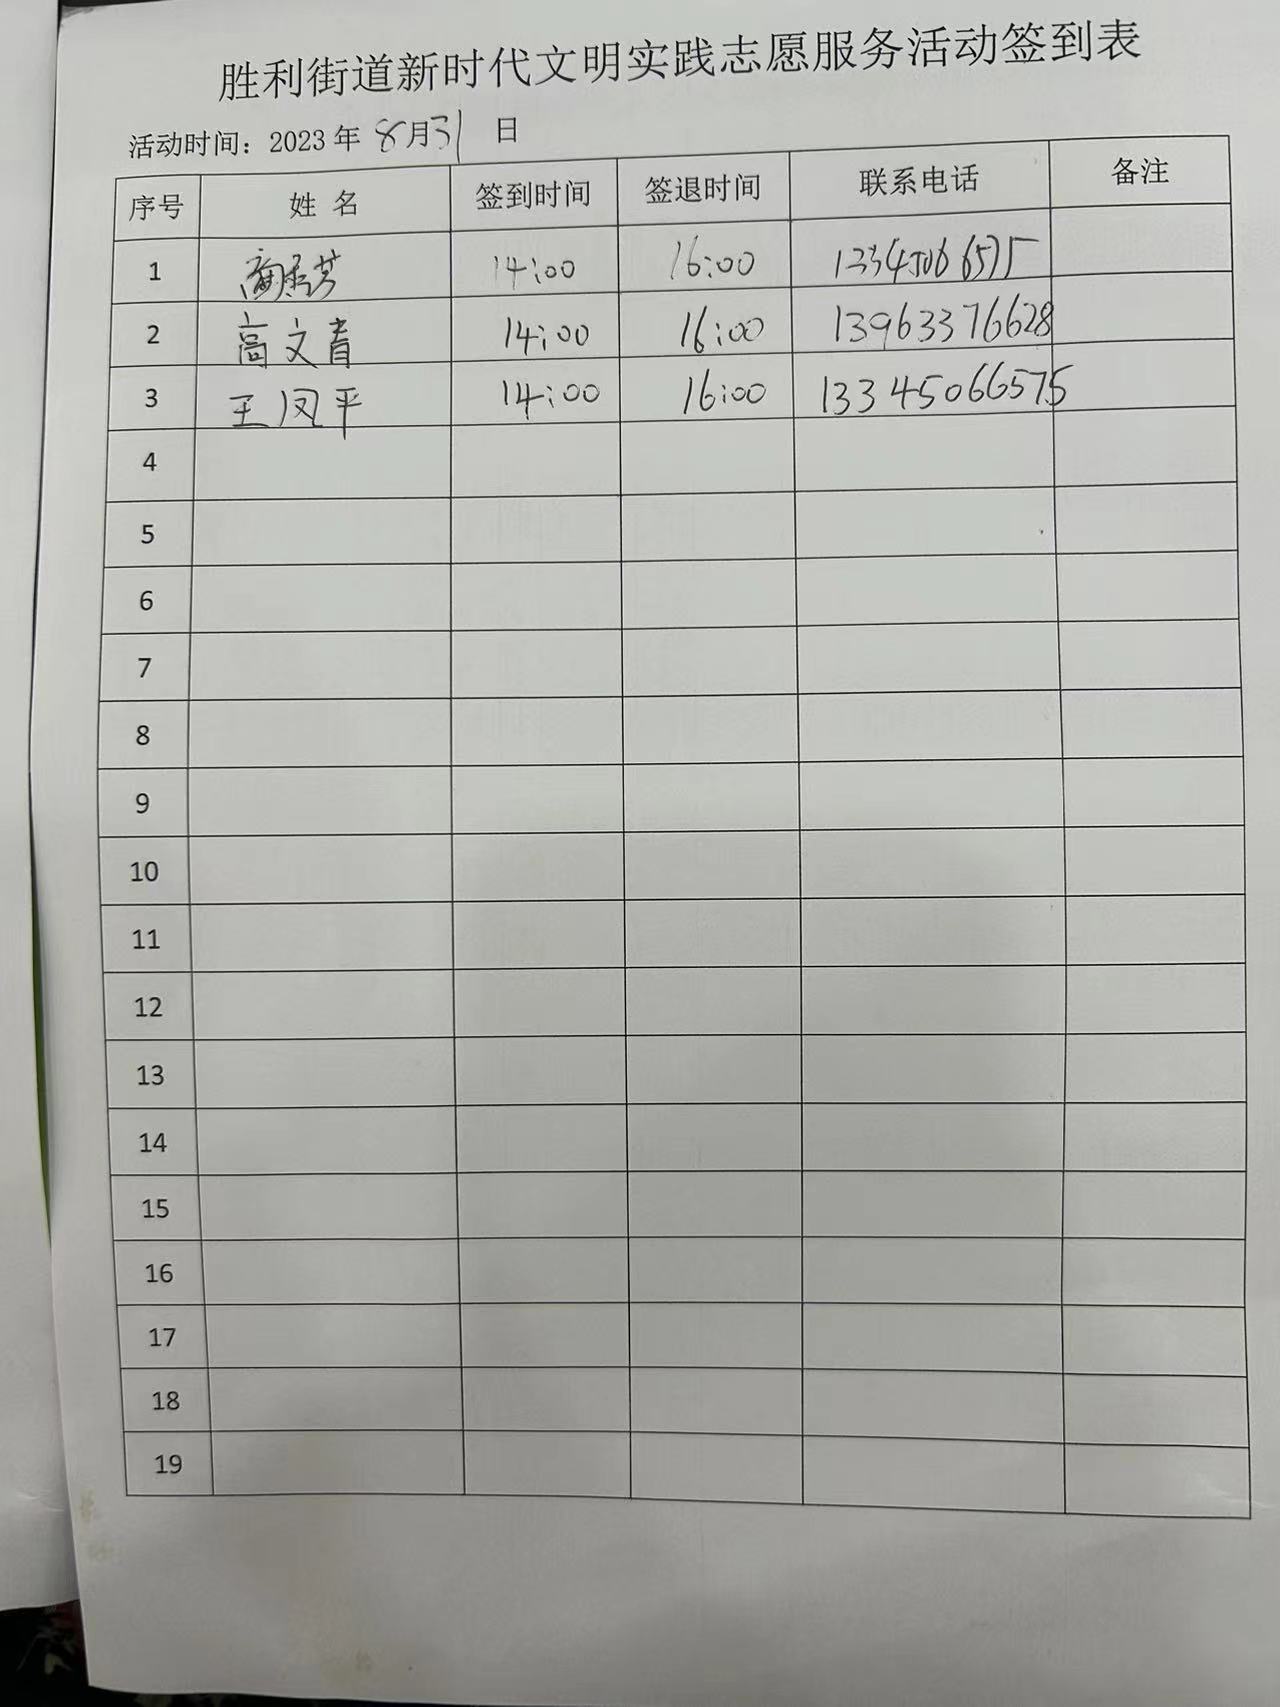 胜利街道新时代文明实践志愿服务活动签到表
活动时间：2023 年 8月31 日
序号 姓 名 签到时间 签退时间 联系电话 备注
1 14:00 16:00
2 高文青 14:00 16:00 13963376628
3 王凤平 14:00 16:00 13345066575
4
5
6
7
8
9
10
11
12
13
14
15
16
17
18
19